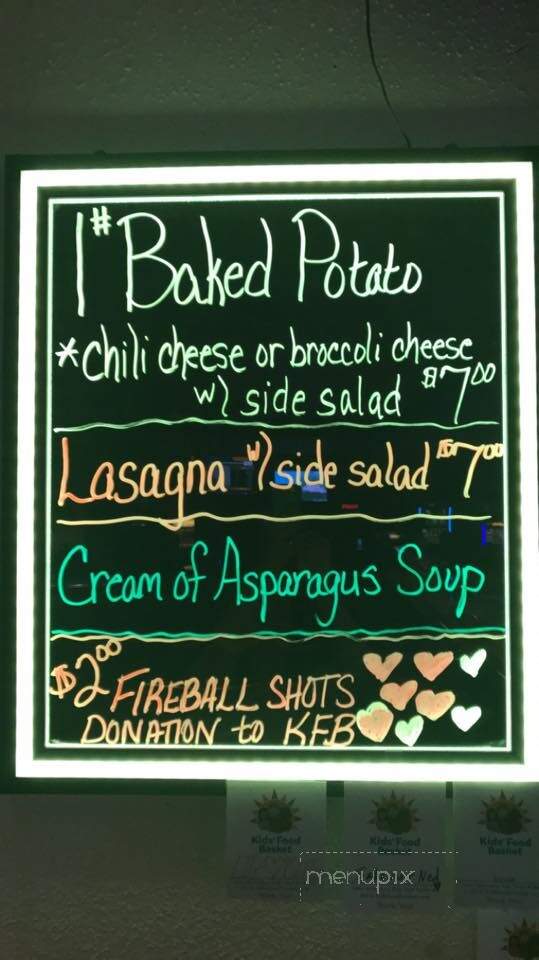 1# Baked Potato
*chili cheese or broccoli cheese
w/ side salad $7.00
Lasagna w/ side salad $7.00
Cream of Asparagus Soup
$2.00 FIREBALL SHOTS
DONATION to KFB
Kids' Food Basket
Kids' Food Basket
Kids' Food Basket
menupix